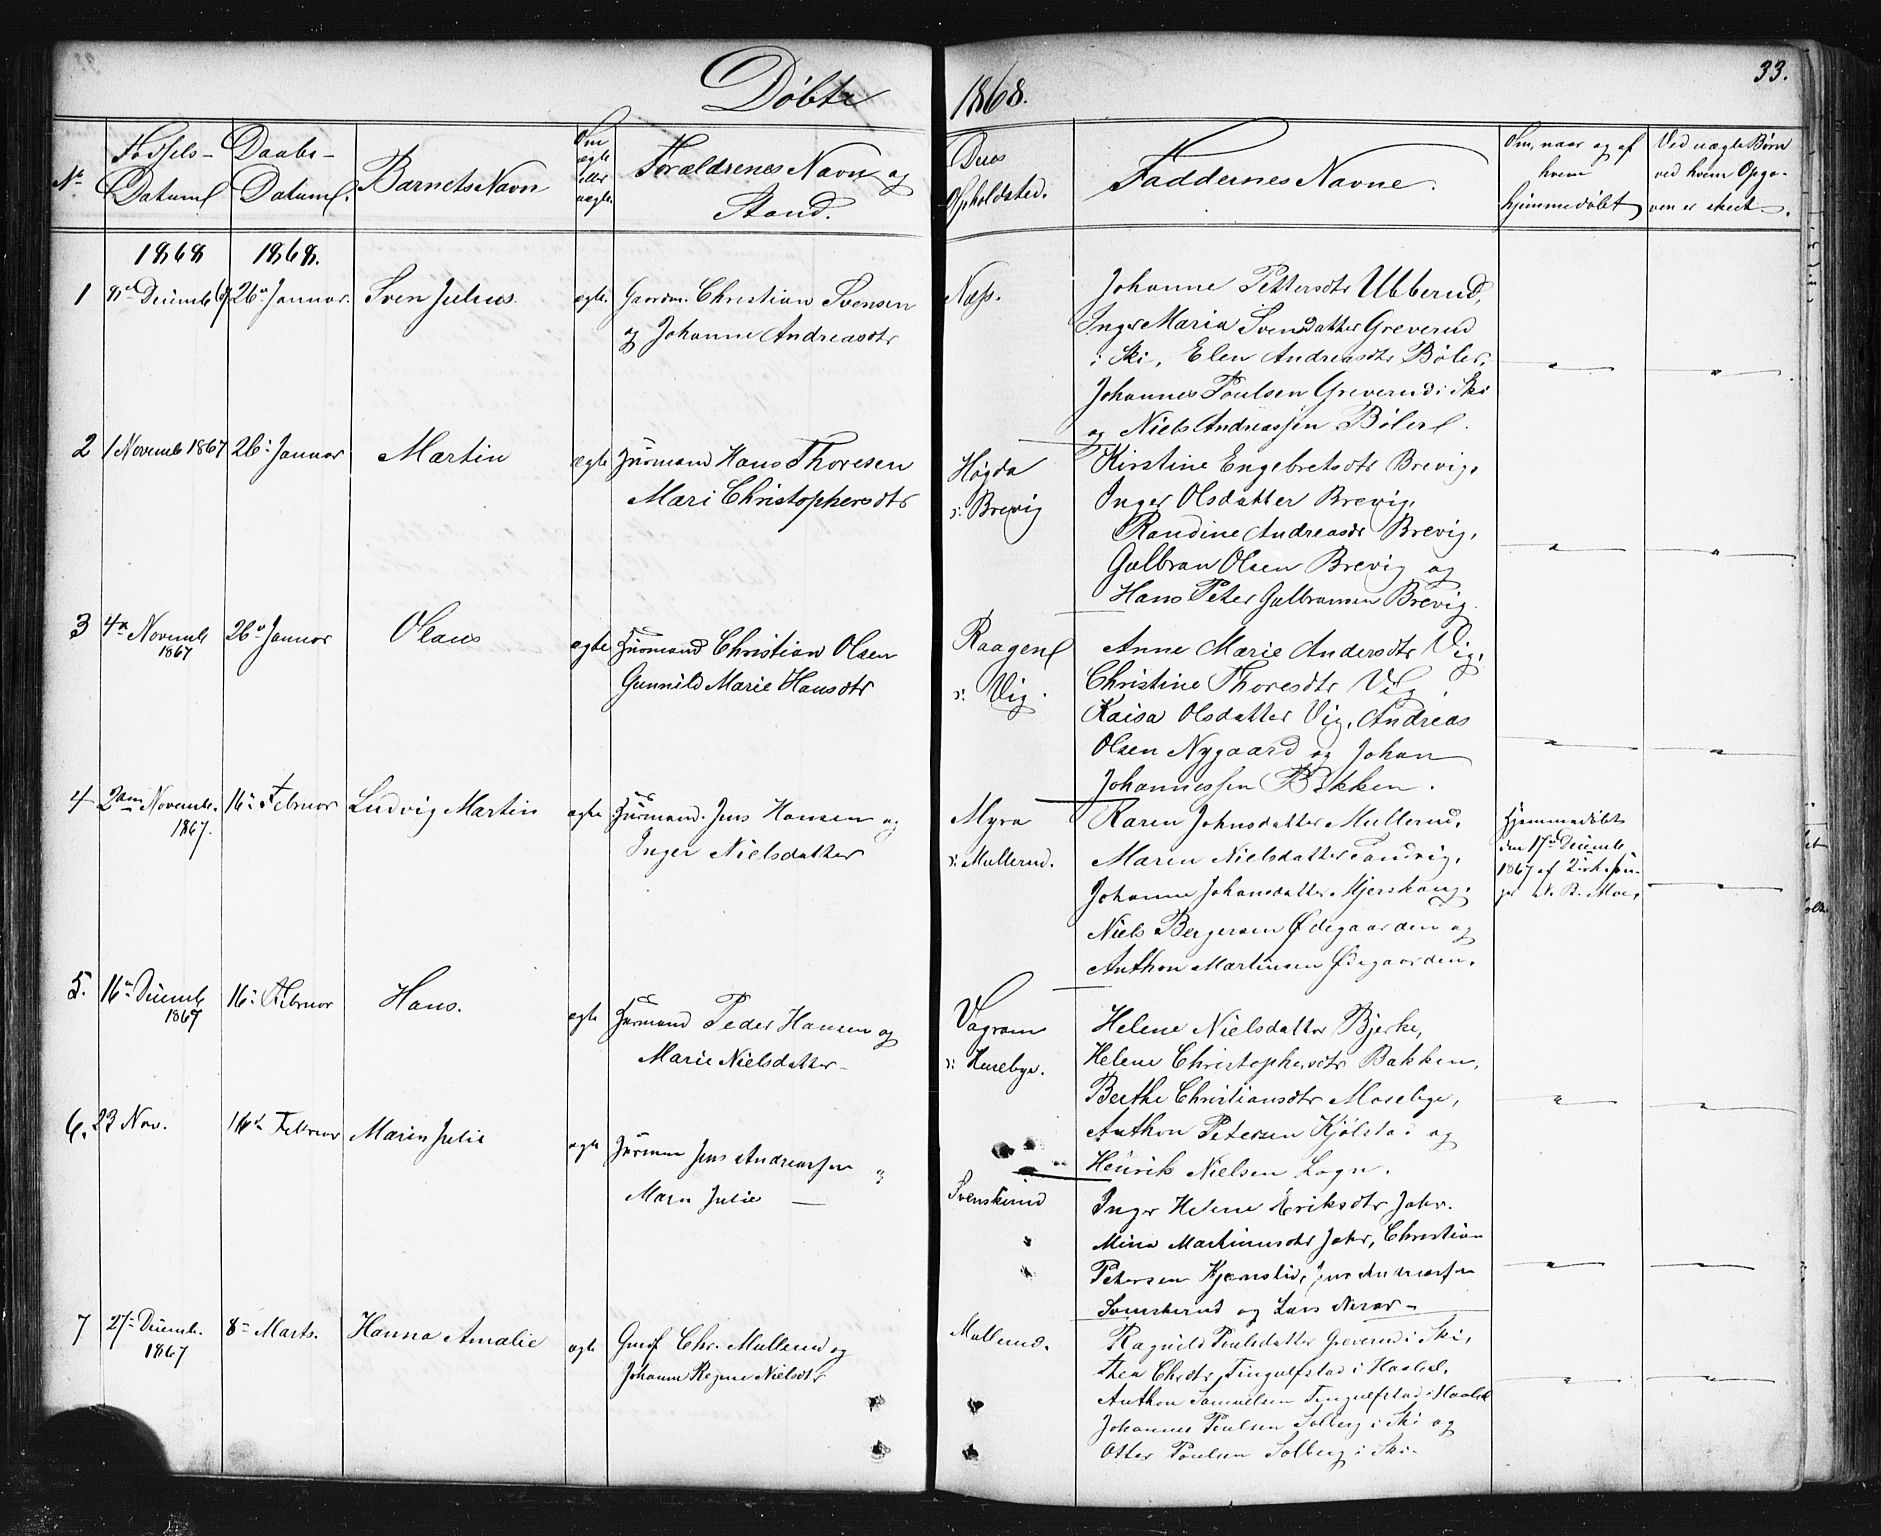 Døbte
1868.
33.
No
Fødsels-
Datum
Daabs-
Datum.
Barnets Navn
Om
ægte
eller
uægte.
Forældrenes Navn og
Stand.
Deres
Opholdsted.
Faddernes Navne.
Om, naar og af
hvem
hjemmedøbt
Ved uægte Børn
ved hvem Opgi-
ven er skeet.
1868
1868.
1
Decemb 67
26 Januar.
Sven Julius.
ægte.
Gaardm. Christian Svensen
og Johanne Andreasdtr
Næss.
Johanne Pettersdtr Ubberud,
Inger Maria Svensdatter Greverud
i Ski, Elen Andreasdtr Bøler,
Johannes Poulsen Greverud i Ski
og Niels Andreassen Bøler.
2
1 Novemb 1867
26 Januar
Martin
ægte
Huusmand Hans Thoresen
Mari Christophersdtr
Høgda
v: Brevig
Kirstine Engebretsdtr Brevig,
Inger Olsdatter Brevig,
Randine Andreasdr Brevig,
Gulbran Olsen Brevig og
Hans Peter Gulbransen Brevig.
3
4 Novemb
1867
26 Januar
Olaus
ægte
Huusmand Christian Olsen
Gunnild Marie Hansdtr
Raagen
v: Vig.
Anne Marie Andersdtr Vig,
Christine Thoresdtr Vig,
Kaisa Olsdatter Vig, Andreas
Olsen Nygaard og Johan
Johannessen Bakken.
4
2 Novemb.
1867.
16 Februar
Ludvig Martin
ægte
Huusmand. Jens Hansen og
Inger Nielsdatter
Myra
v: Mullerud.
Karen Johnsdatter Mullerud,
Maren Nielsdatter Sandvig,
Johanne Johansdatter Mjerskaug,
Niels Bergersen Ødegaarden og
Anthon Martinsen Ødegaarden.
Hjemmedøbt
den 17 Decemb.
1867 af Kirkesan-
ger N. B. Moe,
5.
16 Decemb
1867
16 Februar
Hans.
ægte
Huusmand Peder Hansen og
Marie Nielsdatter
Vagram
v: Huseby.
Helene Nielsdatter Bjerke,
Helene Christophersdtr Bakken,
Berthe Christiansdtr Mosebye,
Anthon Petersen Kjølstad og
Henrik Nielsen Sogn.
6.
23 Nov.
16 Februar
Maren Julie
ægte
Jens Andreassen og
Maren Julie
Svenskerud
Inger Helene Eriksdtr Jahr.
Mina Martinusdtr Jahr, Christian
Petersen Kjærnslid, Jens Andreassen
Svenskerud og Lars Nerar
7
27 Decemb.
1867
8 Marts.
Hanna Amalie
ægte
Chr. Mullerud og
Johanne Regine Nielsdtr
Mullerud.
Ragnild Poulsdatter Greverud i Ski,
Thea Chrdtr Tingulfstad i Haabøl.
Anthon Samuelsen Tingulfstad i Haabøl
Johannes Poulsen Solberg i Ski og
Otter Poulsen Solberg i Ski